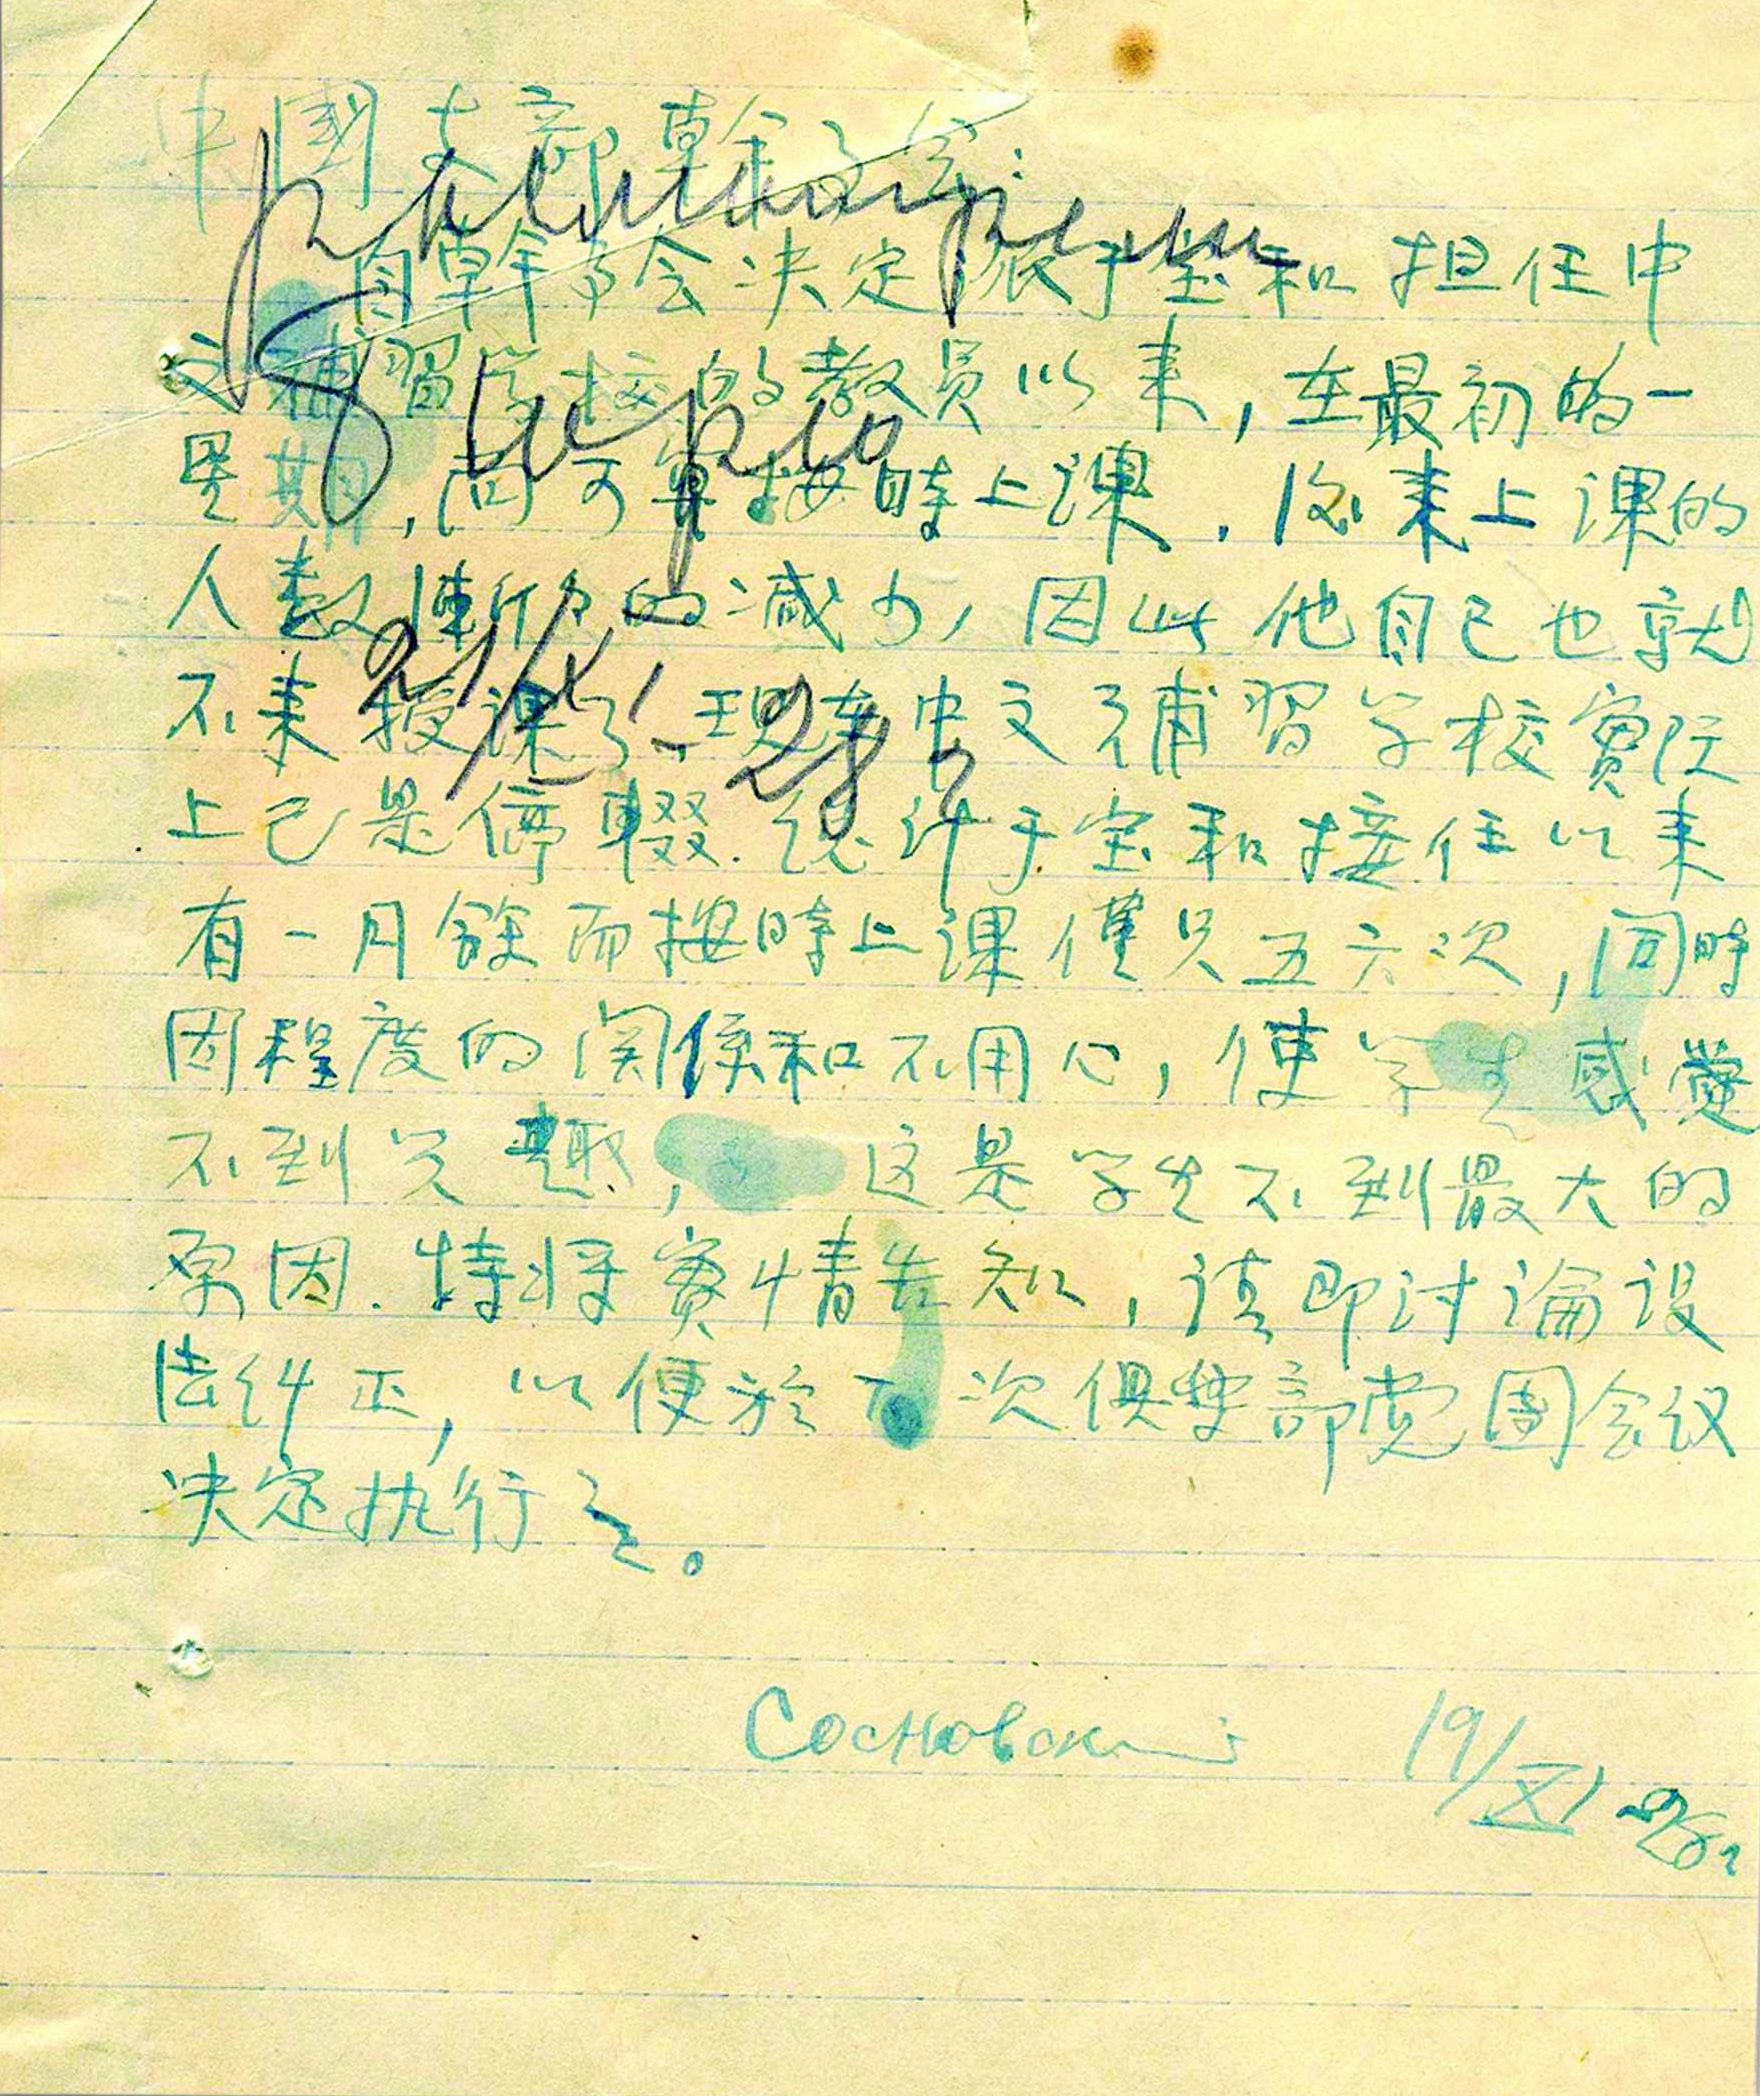 中國支部幹事会:
自幹事会决定派于宝和担任中
文補習学校的教員以来,在最初的一
星期,尚可算按時上課.后来上课的
人数漸漸的减少,因此他自己也就
不来授課了.現在中文補習学校實际
上已是停輟.总计于宝和接任以来
有一月餘而按時上课僅只五六次,同時
因程度的関係和不用心,使学生感覺
不到兴趣,这是学生不到最大的
原因.特将實情告知,请即讨論设
法纠正,以便於下次俱樂部党團会议
决定执行之。
Сосновский 19/XI 28г
21/XI-28г